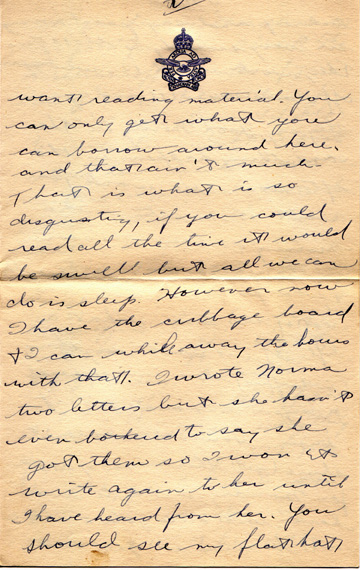 2
want reading material. You
can only get what you
can borrow around here,
and that ain't much.
That is what is so
disgusting, if you could
read all the time it would
be swell but all we can
do is sleep. However now
I have the cribbage board
& I can while away the hours
with that. I wrote Norma
two letters but she hasn't
even bothered to say she
got them so I won't
write again to her until
I have heard from her. You
should see my flat hat